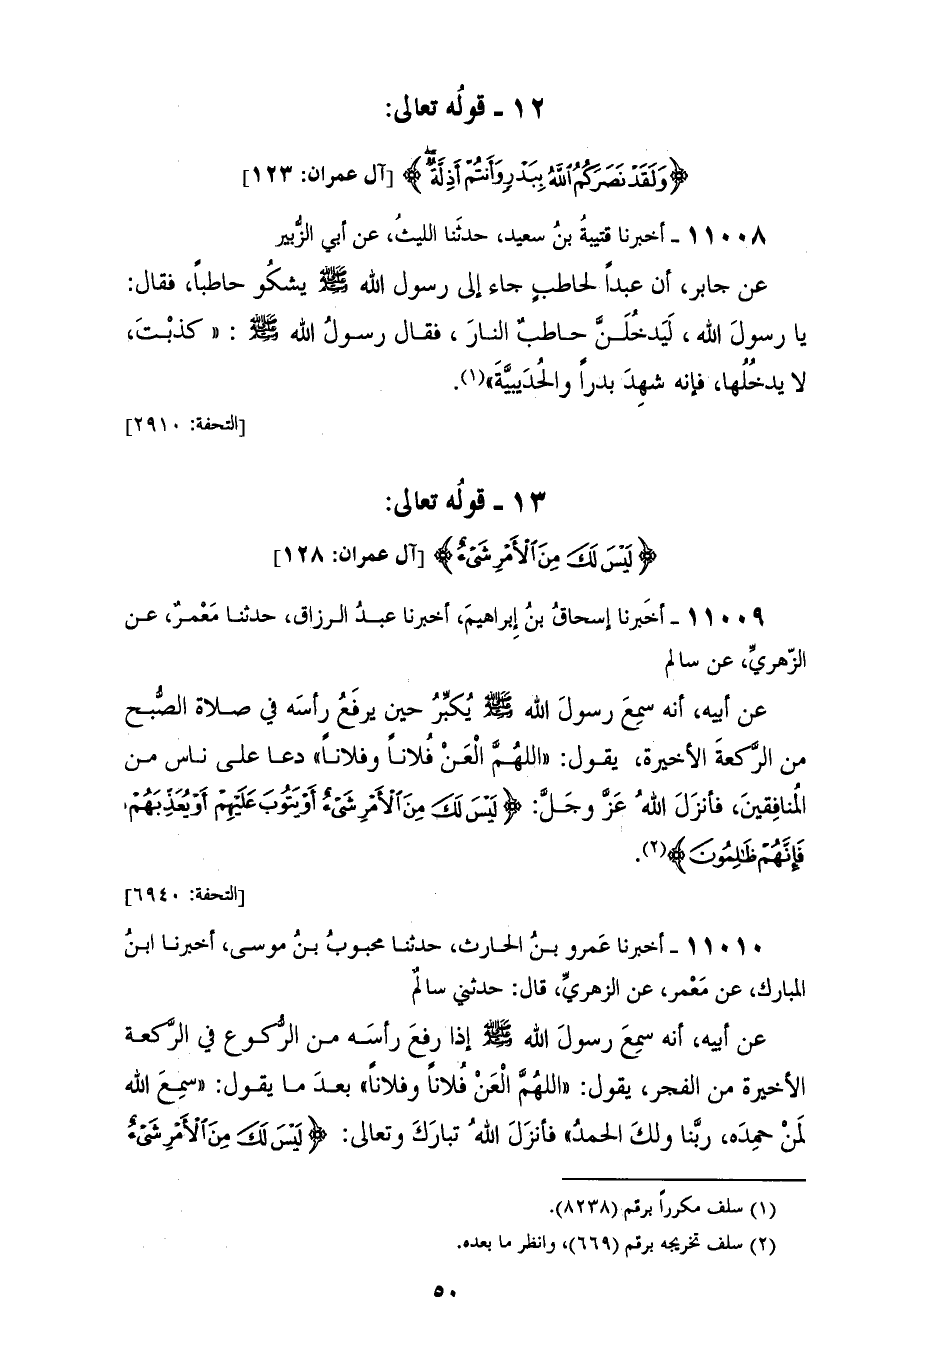 ١٢ ـ قولُه تعالى:
﴿وَلَقَدْ نَصَرَكُمُ ٱللَّهُ بِبَدْرٍ وَأَنتُمْ أَذِلَّةٌ ۖ﴾ [آل عمران: ١٢٣]
١١٠٠٨ ـ أخبرنا قتيبةُ بنُ سعيد، حدثَنا الليثُ، عن أبي الزُّبير
عن جابر، أن عبداً لحاطبٍ جاء إلى رسول الله ﷺ يشكُو حاطباً، فقال:
يا رسولَ الله ، لَيَدخُلَـنَّ حـاطبٌ النـارَ ، فقـال رسـولُ الله ﷺ : « كذبْـتَ،
لا يدخُلُها، فإنه شهِدَ بدراً والحُدَيبيَّةَ»(١).
[التحفة: ٢٩١٠]
١٣ ـ قولُه تعالى:
﴿لَيْسَ لَكَ مِنَ ٱلْأَمْرِ شَىْءٌ﴾ [آل عمران: ١٢٨]
١١٠٠٩ ـ أخبَرنا إسحاقُ بنُ إبراهيمَ، أخبرنا عبـدُ الـرزاق، حدثنـا مَعْمـرٌ، عـن
الزّهريِّ، عن سالم
عن أبيه، أنه سمِعَ رسولَ الله ﷺ يُكبِّرُ حين يرفَعُ رأسَه في صـلاة الصُّبـح
من الرَّكعةَ الأخيرة، يقول: «اللهُـمَّ الْعَـنْ فُلانـاً وفلانـاً» دعـا علـى نـاس مـن
المُنافِقينَ، فأنزَلَ اللهُ عَزَّ وجَلَّ: ﴿لَيْسَ لَكَ مِنَ ٱلْأَمْرِ شَىْءٌ أَوْ يَتُوبَ عَلَيْهِمْ أَوْ يُعَذِّبَهُمْ
فَإِنَّهُمْ ظَٰلِمُونَ﴾(٢).
[التحفة: ٦٩٤٠]
١١٠١٠ ـ أخبرنا عَمرو بـنُ الحـارث، حدثنـا محبوبُ بـنُ موسـى، أخبرنـا ابـنُ
المبارك، عن مَعْمر، عن الزهريِّ، قال: حدثني سالمٌ
عن أبيه، أنه سمِعَ رسولَ الله ﷺ إذا رفعَ رأسَـه مـن الرُّكـوع في الرَّكعـة
الأخيرة من الفجر، يقول: «اللهُمَّ الْعَنْ فُلاناً وفلاناً» بعـدَ مـا يقـول: «سمِـعَ الله
لمَنْ حمِدَه، ربَّنا ولكَ الحمدُ» فأنزَلَ اللهُ تبارَكَ وتعالى: ﴿لَيْسَ لَكَ مِنَ ٱلْأَمْرِ شَىْءٌ
(١) سلف مكرراً برقم (٨٢٣٨).
(٢) سلف تخريجه برقم (٦٦٩)، وانظر ما بعده.
٥٠